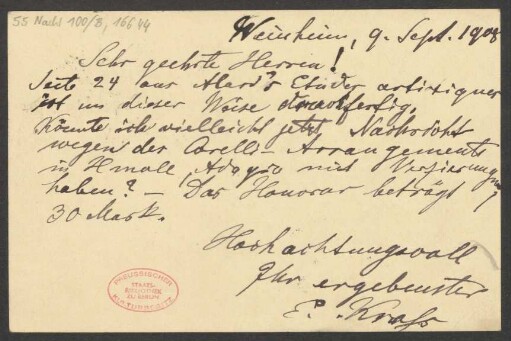 55 Nachl 100/B, 16644
Weinheim, 9. Sept. 1908
Sehr geehrte Herren!
Seite 24 aus Alard's Etudes artistiques
ist in dieser Weise druckfertig.
Könnte ich vielleicht jetzt Nachricht
wegen der Corelli-Arrangements
in H moll, Adagio mit Verzierungen,
haben? – Das Honorar beträgt
30 Mark.
Hochachtungsvoll
Ihr ergebenster
E. Kross
PREUSSISCHER
STAATS-
BIBLIOTHEK
ZU BERLIN
KULTURBESITZ